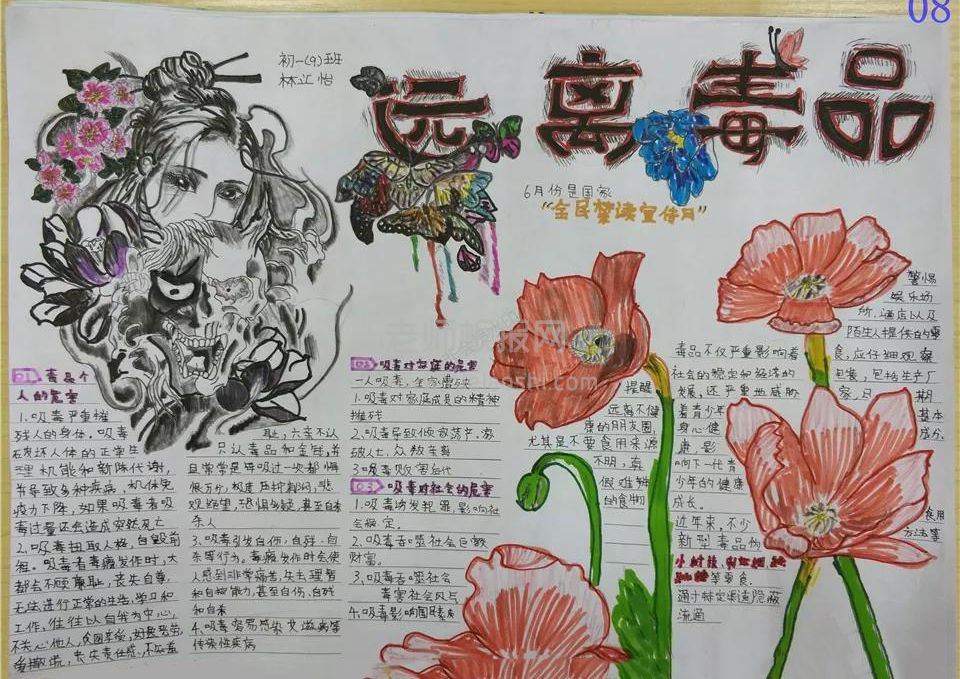 08
初一(9)班
林江怡
远离毒品
6月份是国家
"全民禁读宣传月"
01 毒品个
人的危害
1.吸毒严重摧
残人的身体。吸毒
破坏人体的正常生
理机能和新陈代谢,
并导致多种疾病,机体免
疫力下降,如果吸毒者吸
毒过量还会造成突然死亡
2.吸毒扭取人格,自毁前
程。吸毒者毒瘾发作时,大
都会不顾廉耻,丧失自尊,
无法进行正常的生活、学习和
工作,往往以自我为中心,
不关心他人,贪图享受,好逸恶劳,
爱撒谎,丧失责任感,不知羞
耻,六亲不认
只认毒品和金钱,并
且常常是每吸过一次都悔
恨万分,构建压抑郁闷,悲
观绝望,恐惧多疑,甚至自杀
杀人
3.吸毒引发自伤,自残,自
杀等行为。毒瘾发作时会使
人感到非常痛苦,失去理智
和自控能力,甚至自伤,自残
和自杀
4.吸毒容易感染艾滋病等
传染性疾病
02 吸毒对家庭的危害
一人吸毒,全家遭殃
1.吸毒对家庭成员的精神
摧残
2.吸毒导致倾家荡产,家
破人亡,众叛亲离
3吸毒败害后代
03 吸毒对社会的危害
1.吸毒诱发犯罪影响社
会稳定。
2.吸毒吞噬社会巨额
财富。
3.吸毒吞噬社会
毒害社会风气
4.吸毒影响国民素质
提醒
远离不健
康的朋友圈,
尤其是不要食用来源
不明,真
假难辨
的食物
毒品不仅严重影响着
社会的稳定和经济的
发展,还严重地威胁
着青少年
身心健
康,影
响下一代青
少年的健康
成长。
近年来,不少
新型毒品伪
等零食。
通过特定渠道隐蔽
流通
警惕
娱乐场
所,酒店以及
陌生人提供的零
食,应仔细观察
包装,包括生产厂
家,日期
基本
成分,
食用
方法等